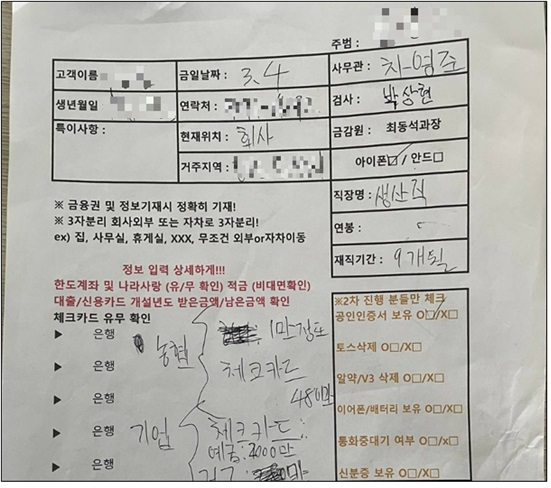 주범 :
고객이름
금일날짜 : 3.4
사무관 : 차영준
생년월일
연락처 :
검사 : 박상현
특이사항 :
현재위치 : 회사
금감원 : 최동석과장
거주지역 :
아이폰☑ / 안드□
직장명 : 생산직
연봉 : -
재직기간 : 9개월
※ 금융권 및 정보기재시 정확히 기재!
※ 3자분리 회사외부 또는 자차로 3자분리!
ex) 집, 사무실, 휴게실, XXX, 무조건 외부or자차이동
정보 입력 상세하게!!!
한도계좌 및 나라사랑 (유/무 확인) 적금 (비대면확인)
대출/신용카드 개설년도 받은금액/남은금액 확인
체크카드 유무 확인
▶ 은행 농협 1만정도
▶ 은행 체크카드
48만
▶ 은행 기업 체크카드
예금: 2000만
▶ 은행
※2차 진행 분들만 체크
공인인증서 보유 O☑/X□
토스삭제 O□/X□
알약/V3 삭제 O□/X□
이어폰/배터리 보유 O□/X□
통화중대기 여부 O□/x□
신분증 보유 O□/X□